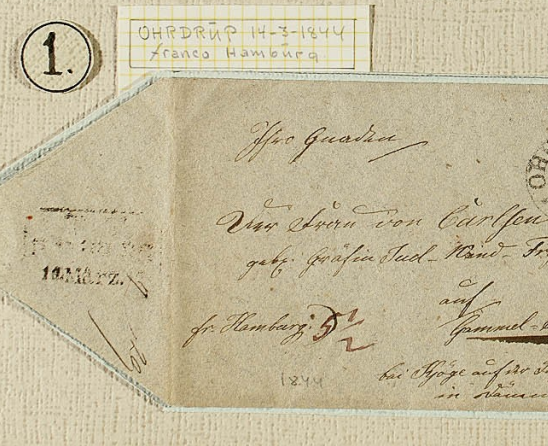 1.
OHRDRUP 14-3-1844
franco Hamburg
Ihro Gnaden
Der Frau von Carlsen
geb. Gräfin Juel-Wind-Fr
auf
Gammel-
fr. Hamburg. 5 1/2
bei Kjöge auf der
in Dänem
1844
März.
OH